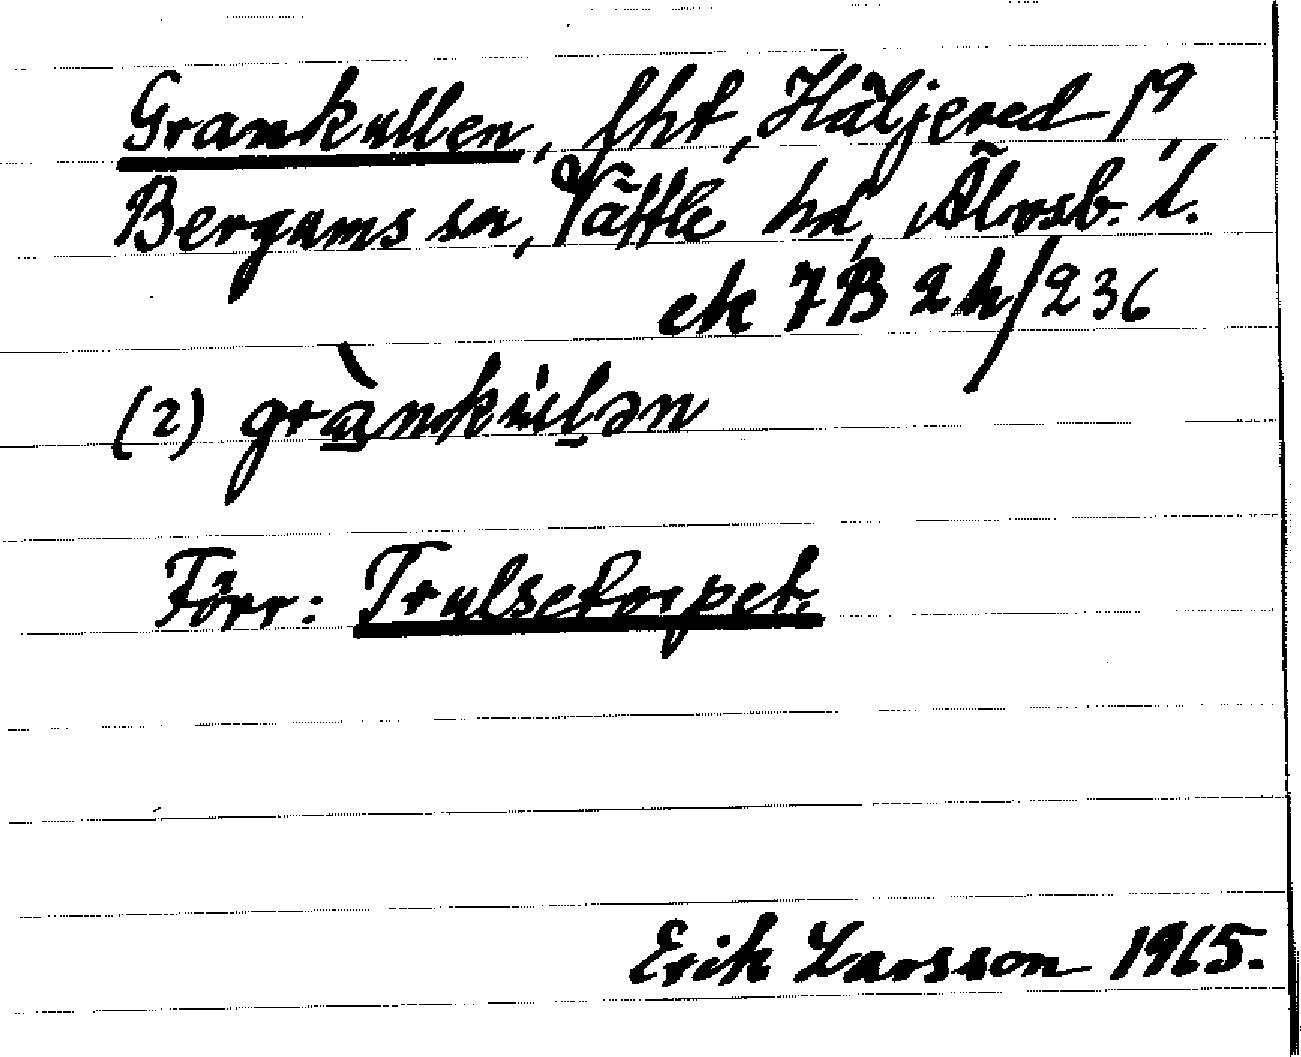 Grankullen, lht, Häljered 1⁹
Bergums sn, Vättle hd, Älvsb. l.
ek 7B 2h/236
(2) grànkúlən
Förr: Trulsetorpet.
Erik Larsson 1965.